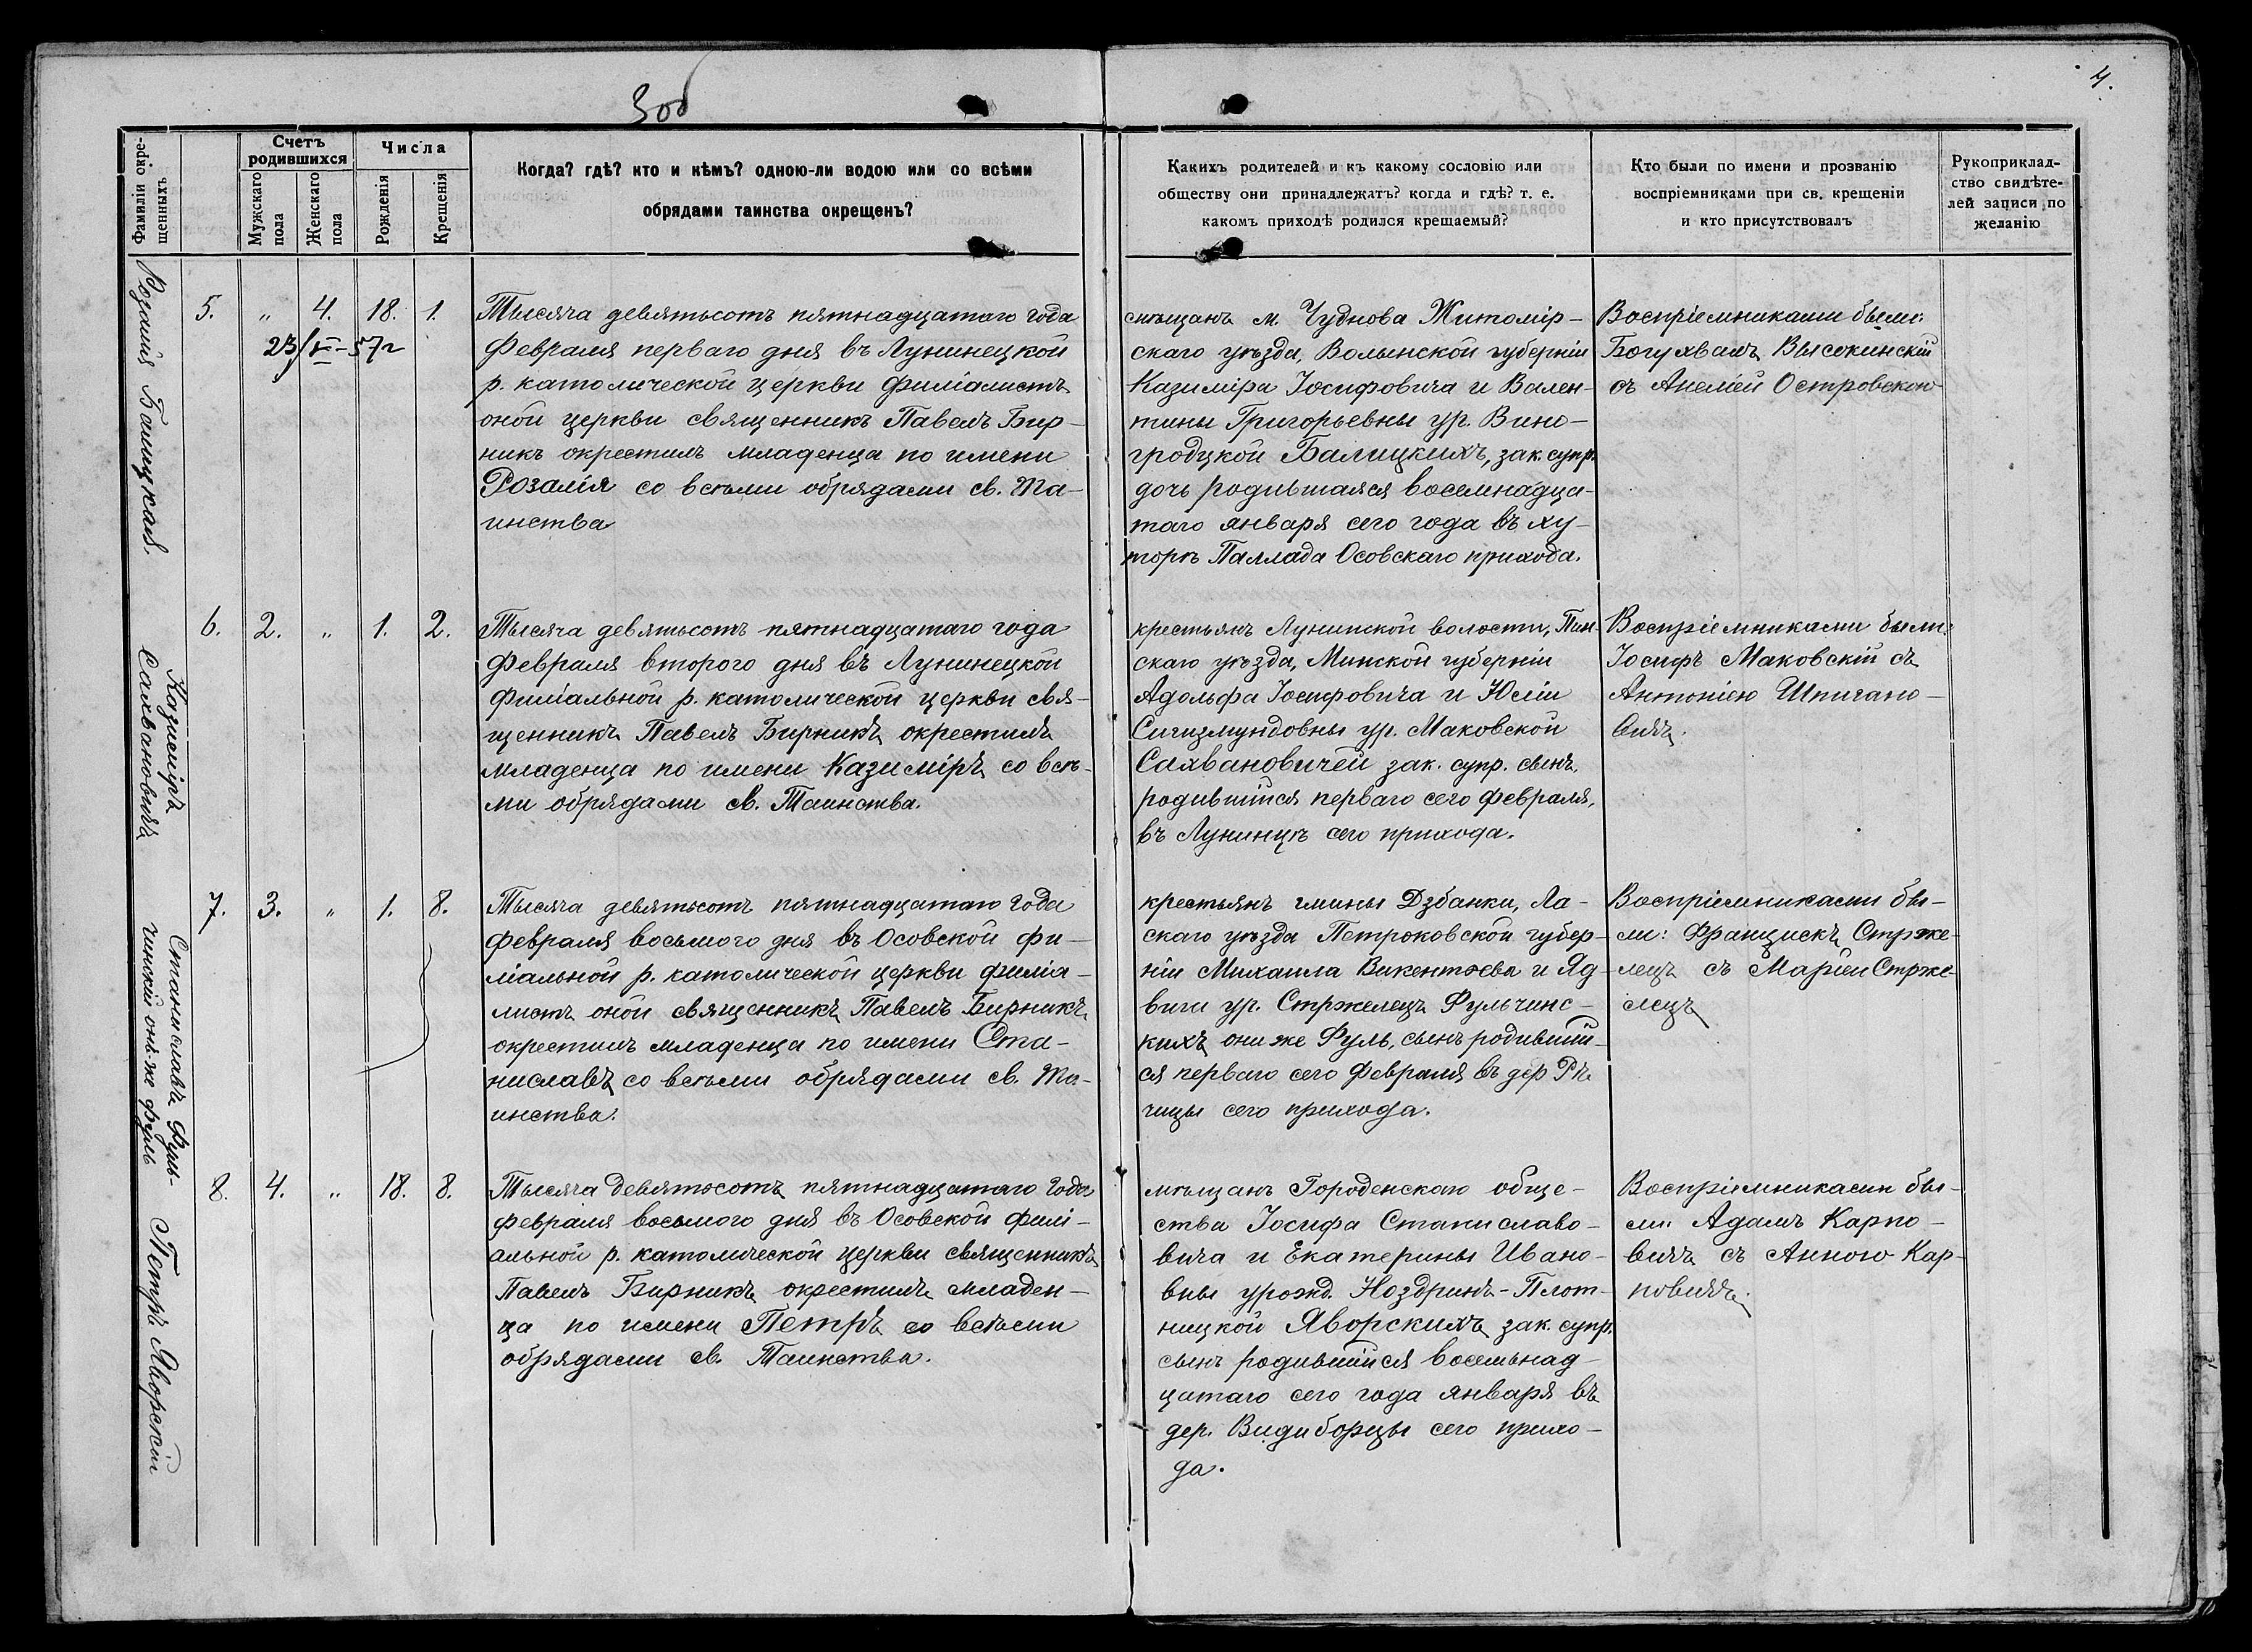 3об
4.
Фамиліи окре-
щенныхъ
Счетъ
родившихся
Мужскаго
пола
Женскаго
пола
Числа
Рожденія
Крещенія
Когда? гдѣ? кто и кѣмъ? одною-ли водою или со всѣми
обрядами таинства окрещенъ?
Какихъ родителей и къ какому сословію или
обществу они принадлежатъ? когда и гдѣ? т. е.
какомъ приходѣ родился крещаемый?
Кто были по имени и прозванію
воспріемниками при св. крещеніи
и кто присутствовалъ
Рукоприклад-
ство свидѣте-
лей записи по
желанію
Розалія Балицкая.
5. " 4. 18. 1.
23/V-57г
Тысяча девятьсотъ пятнадцатаго года
Февраля перваго дня въ Лунинецкой
р. католической церкви филіалистъ
оной церкви священникъ Павелъ Бир-
никъ окрестилъ младенца по имени
Розалія со всѣми обрядами св. Та-
инства
мѣщанъ м. Чуднова Житомір-
скаго уѣзда, Волынской губерніи
Казиміра Іосифовича и Вален-
тины Григорьевны ур. Вино-
гродцкой Балицкихъ, зак. супр.
дочь родившаяся восемнадца-
таго января сего года въ ху-
торѣ Паллада Осовскаго прихода.
Воспріемниками были:
Богухвалъ Высокинскій
съ Анеліей Островскою
Казиміръ
Сахвановичъ
6. 2. " 1. 2.
Тысяча девятьсотъ пятнадцатаго года
Февраля второго дня въ Лунинецкой
филіальной р. католической церкви свя-
щенникъ Павелъ Бирникъ окрестилъ
младенца по имени Казиміръ со всѣ-
ми обрядами св. Таинства.
крестьянъ Лунинской волости, Пин-
скаго уѣзда, Минской губерніи
Адольфа Іосифовича и Юліи
Сигизмундовны ур. Маковской
Сахвановичей зак. супр. сынъ,
родившійся перваго сего Февраля,
въ Лунинцѣ сего прихода.
Воспріемниками были:
Іосифъ Маковскій съ
Антоніею Шпигано-
вичъ.
Станиславъ Фуль-
чинскій онъ-же Фуль
7. 3. " 1. 8.
Тысяча девятьсотъ пятнадцатаго года
февраля восьмого дня въ Осовской фи-
ліальной р. католической церкви филіа-
листъ оной священникъ Павелъ Бирникъ
окрестилъ младенца по имени Ста-
ниславъ со всѣми обрядами св. Та-
инства.
крестьянъ гмины Дзбанки, Ла-
скаго уѣзда Петроковской губер-
ніи Михаила Викентьева и Яд-
виги ур. Стржелецъ Фульчинс-
кихъ они же Фуль, сынъ родившій-
ся перваго сего Февраля въ дер Рѣ-
чицы сего прихода.
Воспріемниками бы-
ли: Францискъ Стрже-
лецъ съ Маріей Стрже-
лецъ
Петръ Яворскій
8. 4. " 18. 8.
Тысяча девятьсотъ пятнадцатаго года
февраля восьмого дня въ Осовской филі-
альной р. католической церкви священникъ
Павелъ Бирникъ окрестилъ младен-
ца по имени Петръ со всѣми
обрядами св. Таинства.
мѣщанъ Городенскаго обще-
ства Іосифа Станиславо-
вича и Екатерины Ивано-
вны урожд. Ноздринъ-Плот-
ницкой Яворскихъ зак. супр.
сынъ родившійся восемьнад-
цатаго сего года января въ
дер. Видиборцы сего прихо-
да.
Воспріемниками бы-
ли: Адамъ Карпо-
вичъ съ Анною Кар-
повичъ.